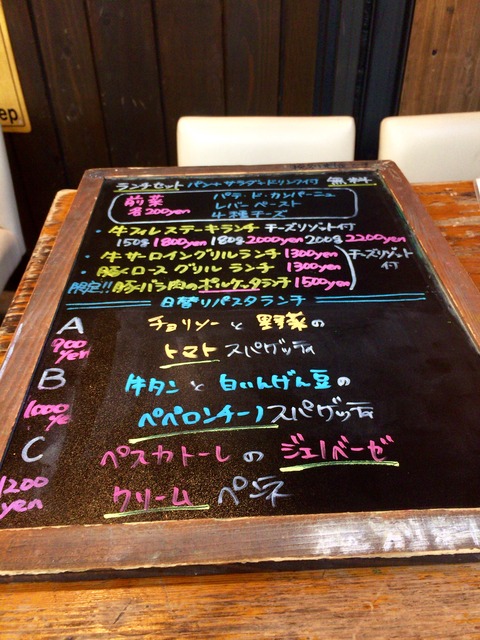 ep
ランチセット パン+サラダ+ドリンク付 無料
前菜 各200yen
パテ・ド・カンパーニュ
レバーペースト
4種チーズ
・牛フィレステーキランチ チーズリゾット付
150g 1800yen 180g 2000yen 200g 2200yen
・牛サーロイングリルランチ 1300yen
・豚ロースグリルランチ 1300yen
チーズリゾット付
限定!! 豚バラ肉のポルケッタランチ 1500yen
日替りパスタランチ
A
900yen
チョリソーと野菜の
トマトスパゲッティ
B
1000ye
牛タンと白いんげん豆の
ペペロンチーノスパゲッティ
C
1200yen
ペスカトーレのジェノベーゼ
クリームペンネ